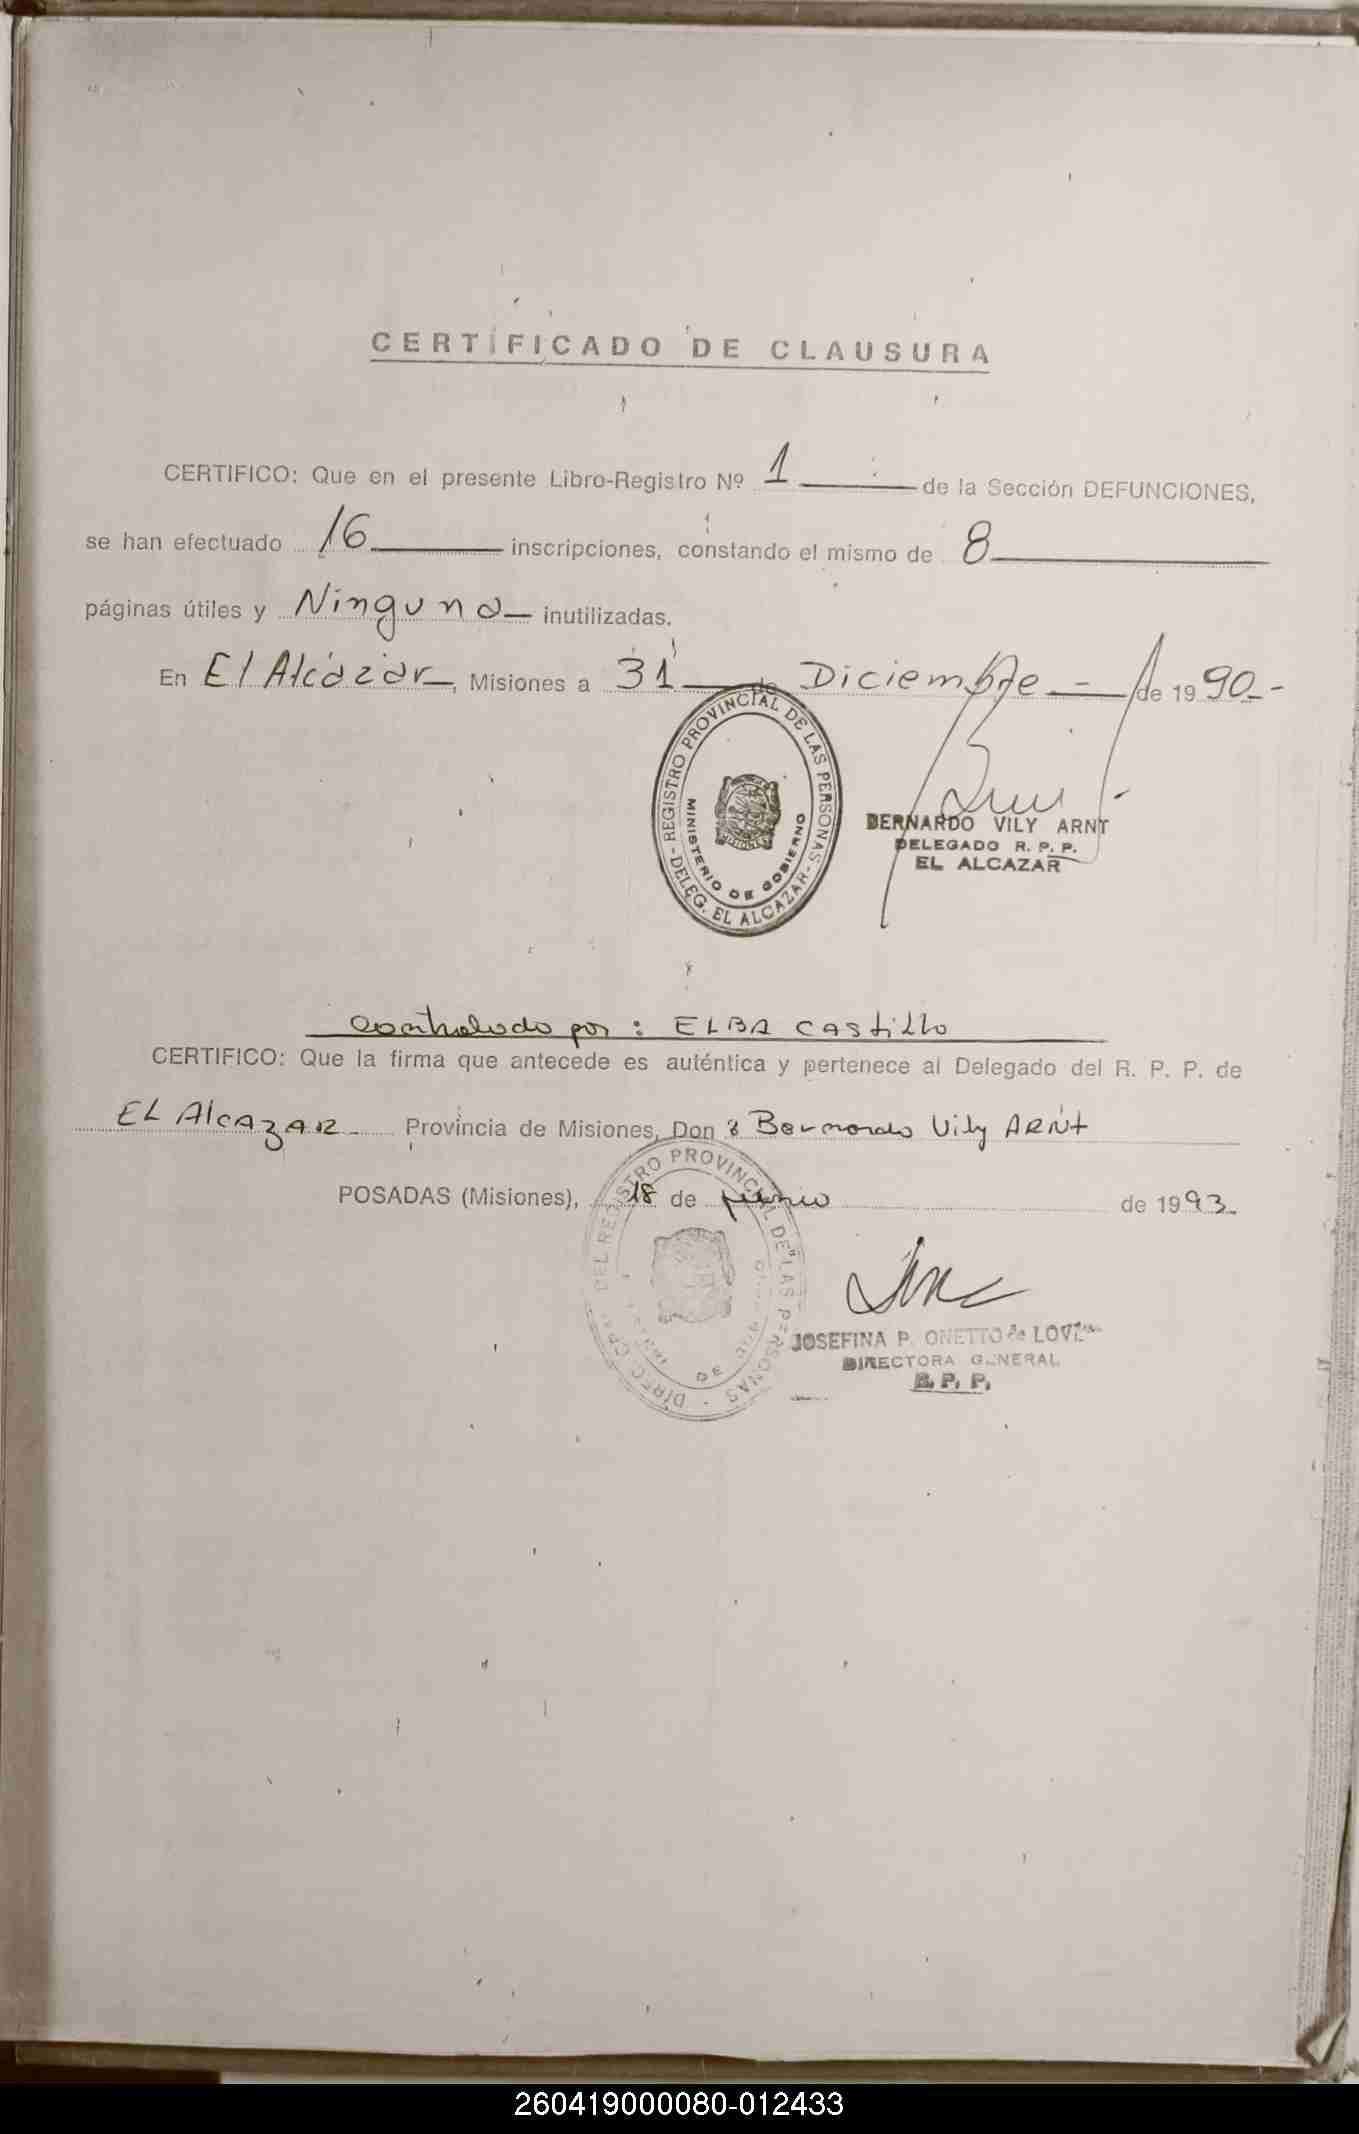 CERTIFICADO DE CLAUSURA
CERTIFICO: Que en el presente Libro-Registro Nº 1 de la Sección DEFUNCIONES,
se han efectuado 16 inscripciones, constando el mismo de 8
páginas útiles y Ninguna inutilizadas.
En El Alcázar, Misiones a 31 de Diciembre de 1990.-
REGISTRO PROVINCIAL DE LAS PERSONAS - DELEG. EL ALCAZAR -
MINISTERIO DE GOBIERNO
MISIONES
BERNARDO VILY ARNT
DELEGADO R. P. P.
EL ALCAZAR
Controlado por: ELBA CAStiLLo
CERTIFICO: Que la firma que antecede es auténtica y pertenece al Delegado del R. P. P. de
EL AlCAzAR Provincia de Misiones, Don Bernardo Vily ARNt
POSADAS (Misiones), 18 de junio de 1993.
DEL REGISTRO PROVINCIAL DE LAS PERSONAS
DE
JOSEFINA P. ONETTO de
DIRECTORA GENERAL
R. P. P.
260419000080-012433